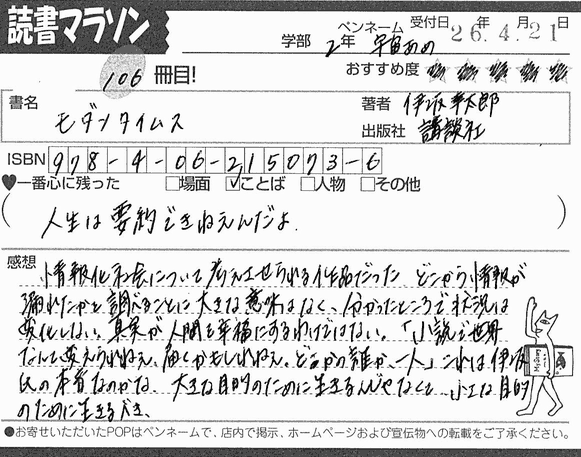 読書マラソン
学部 2年 ペンネーム 宇宙あめ 受付日 26年4月21日
106 冊目!
おすすめ度 ★★★★★
書名 モダンタイムス
著者 伊坂幸太郎
出版社 講談社
ISBN 978-4-06-215073-6
♥一番心に残った □場面 ☑ことば □人物 □その他
人生は要約できねえんだよ
感想
情報化社会について考えさせられる作品だった どこから情報が
漏れたかを調べることに大きな意味はなく、分かったところで状況は
変化しない。真実が人間を幸福にするわけではない。「小説で世界
なんて変えられねえ。届くかもしれねえ。どこかの誰か、一人」これは伊坂
氏の本音なのかな、大きな目的のために生きるんじゃなくて、小さな目的
のために生きるべき。
●お寄せいただいたPOPはペンネームで、店内で掲示、ホームページおよび宣伝物への転載をご了承ください。